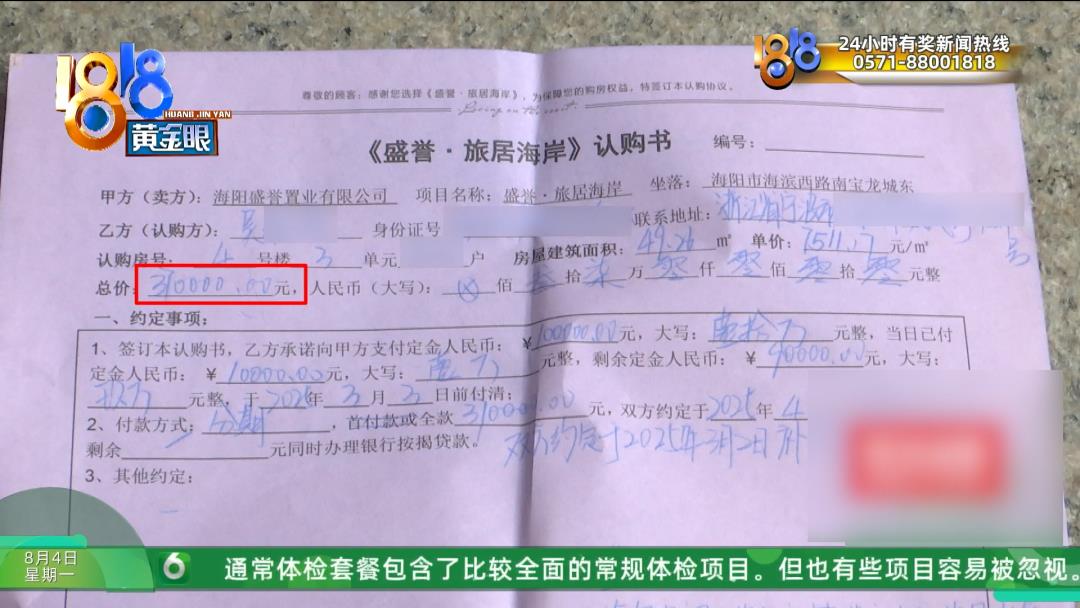 1818
HUANG JIN YAN
黄金眼
1818
24小时有奖新闻热线
0571-88001818
尊敬的顾客:感谢您选择《盛誉·旅居海岸》,为保障您的购房权益,特签订本认购协议。
《盛誉·旅居海岸》认购书 编号:
甲方(卖方):海阳盛誉置业有限公司 项目名称:盛誉·旅居海岸 坐落:海阳市海滨西路南宝龙城东
乙方(认购方):吴 身份证号 联系地址:浙江省宁波 号
认购房号:4号楼3单元 户 房屋建筑面积:49.26㎡ 单价:7511.17元/㎡
总价:370000.00元,人民币(大写):⊗佰叁拾柒万零仟零佰零拾零元整
一、约定事项:
1、签订本认购书,乙方承诺向甲方支付定金人民币:¥100000.00元,大写:壹拾万元整,当日已付
定金人民币:¥10000.00元,大写:壹万元整,剩余定金人民币:¥90000.00元,大写:
玖万元整,于2025年3月3日前付清;
2、付款方式:分期,首付款或全款370000.00元,双方约定于2025年4
剩余 元同时办理银行按揭贷款。 双方约定于2025年3月2日补
3、其他约定:
8月4日
星期一
6
通常体检套餐包含了比较全面的常规体检项目。但也有些项目容易被忽视。